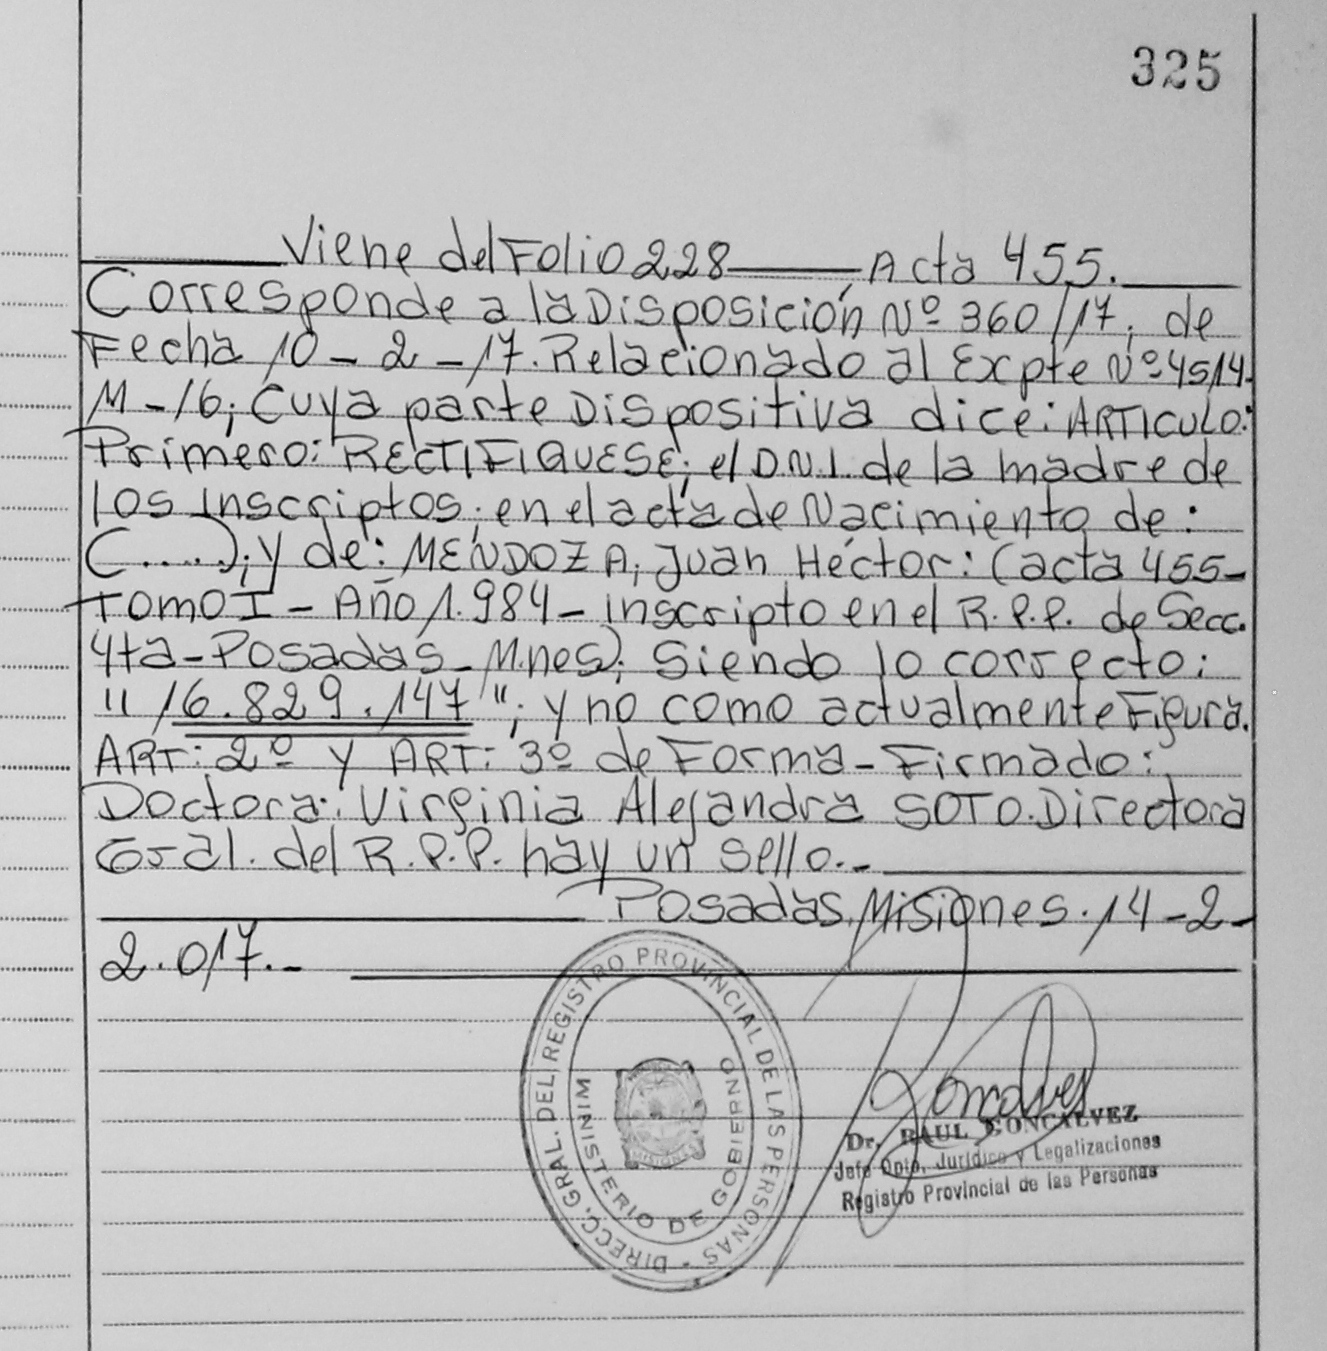 325
Viene del Folio 228 , Acta 455.
Corresponde a la Disposición Nº 360/17, de
Fecha 10-2-17. Relacionado al Expte Nº 4514-
M-16; Cuya parte Dispositiva dice: ARTICULO:
Primero: RECTIFIQUESE; el D.N.I. de la madre de
los Inscriptos; en el acta de Nacimiento de:
(.....); y de: MENDOZA, Juan Héctor: (acta 455-
Tomo I - Año 1.984 - inscripto en el R.P.P. de Secc.
4ta-Posadas-M.nes); Siendo lo correcto:
"16.829.147"; y no como actualmente Figura.
ART: 2º y ART: 3º de Forma- Firmado:
Doctora: Virginia Alejandra SOTO. Directora
Gral. del R.P.P. hay un sello.-
Posadas, Misiones. 14-2-
2.017.-
DIRECC. GRAL. DEL REGISTRO PROVINCIAL DE LAS PERSONAS -
MINISTERIO DE GOBIERNO
MISIONES
Goncalves
Dr. RAUL GONCALVEZ
Jefe Dpto. Jurídico y Legalizaciones
Registro Provincial de las Personas